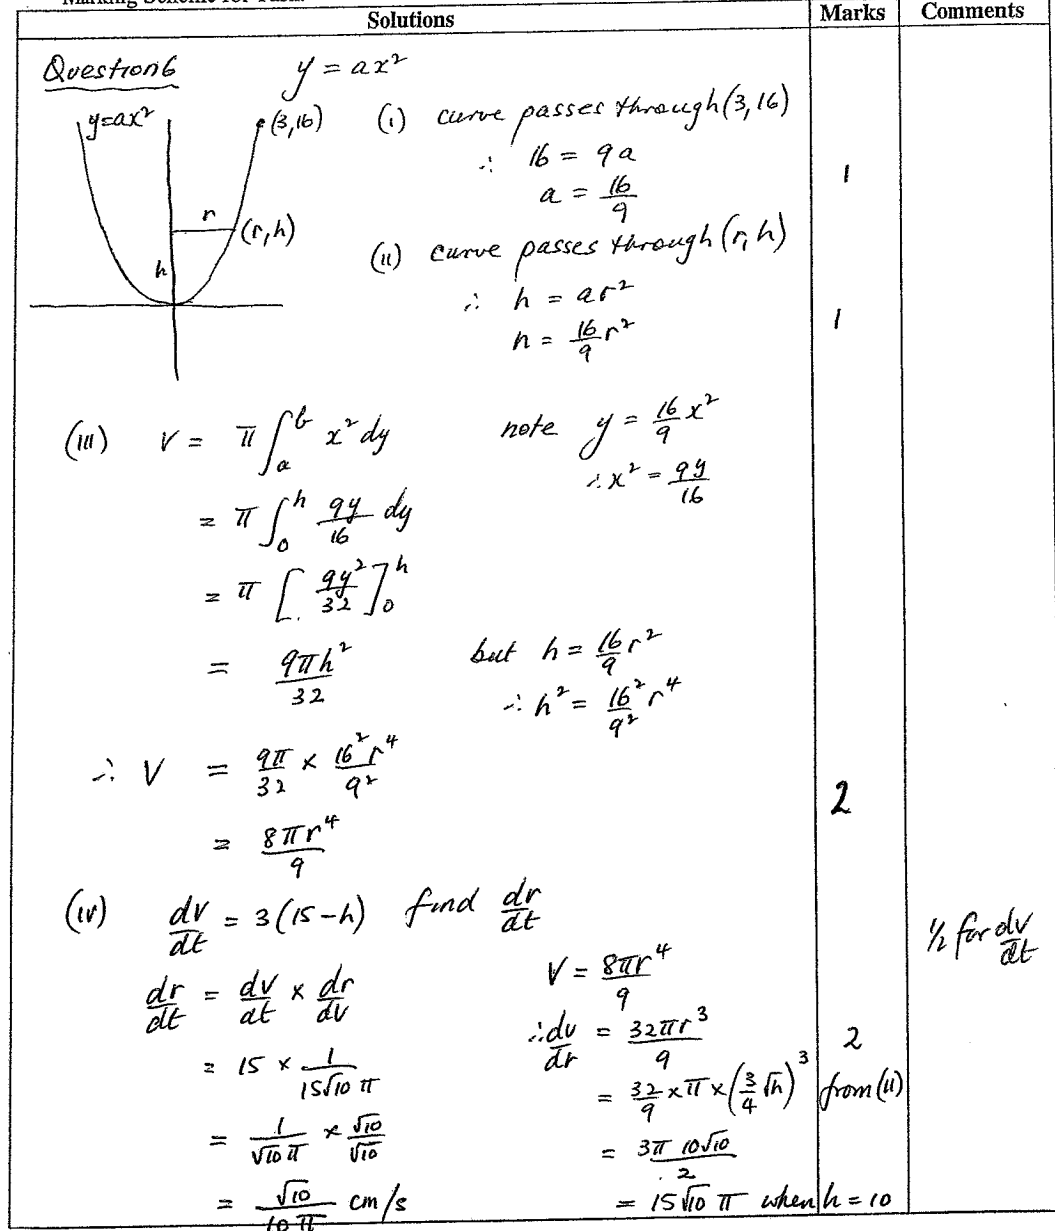 Solutions
Marks
Comments
Question 6
y = ax²
y=ax²
(3,16)
r
(r,h)
h
(i) curve passes through (3,16)
∴ 16 = 9a
a = 16/9
1
(ii) curve passes through (r, h)
∴ h = ar²
h = 16/9 r²
1
(iii) V = π ∫_a^b x² dy
note y = 16/9 x²
∴ x² = 9y/16
= π ∫_0^h 9y/16 dy
= π [ 9y²/32 ]_0^h
= 9πh²/32
but h = 16/9 r²
∴ h² = 16²/9² r⁴
∴ V = 9π/32 × 16² r⁴/9²
= 8πr⁴/9
2
(iv) dv/dt = 3(15-h) find dr/dt
½ for dv/dt
dr/dt = dv/dt × dr/dv
V = 8πr⁴/9
∴ dv/dr = 32πr³/9
2
= 15 × 1/(15√10 π)
= 32/9 × π × (3/4 √h)³ from (ii)
= 1/(√10 π) × √10/√10
= 3π 10√10/2
= √10/(10π) cm/s
= 15√10 π when h = 10